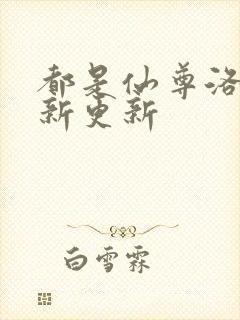 都是仙尊洛
新更新
白雪霖